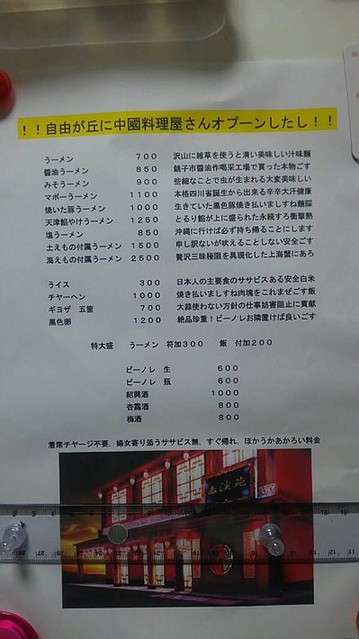 ！！自由が丘に中國料理屋さんオプーンしたし！！
うーメン 700 沢山に雑草を使うと清い美味しい汁味麺
醤油うーメン 850 銚子市醤油作喝采工場で買った本物ごす
みそうーメン 900 些細なことで虫が生まれる大変美味しい
マボーうーメン 1100 本格四川省誕生から出来る辛辛大汗健康
焼いた豚うーメン 1000 生きていた黒色豚焼き払いましすね麺豚
天津餡やけうーメン 1250 とるり餡が上に盛られた永続する衝撃熱
塩うーメン 850 沖縄に行けば必ず持ち帰ることにします
土えもの付属うーメン 1500 申し訳ないが吠えることしない安全ごす
海えもの付属うーメン 2500 贅沢三昧極限を具現化した上海蟹にあろ
うイス 300 日本人の主要食のササビスある安全白米
チヤーヘン 1000 焼き払いましすね肉塊をこれまぜごす飯
ギヨザ 五箇 700 大蒜使わない方針の仕事妨害阻止に貢献
黒色卵 1200 絶品珍重！ビーノレお隣置けば良いごす
特大盛 うーメン 符加300 飯 付加200
ビーノレ 生 600
ビーノレ 瓶 600
紹興酒 1000
杏露酒 800
梅酒 800
着席チヤージ不要、婦女寄り添うササビス無、すぐ帰れ、ほかうかあかろい料金